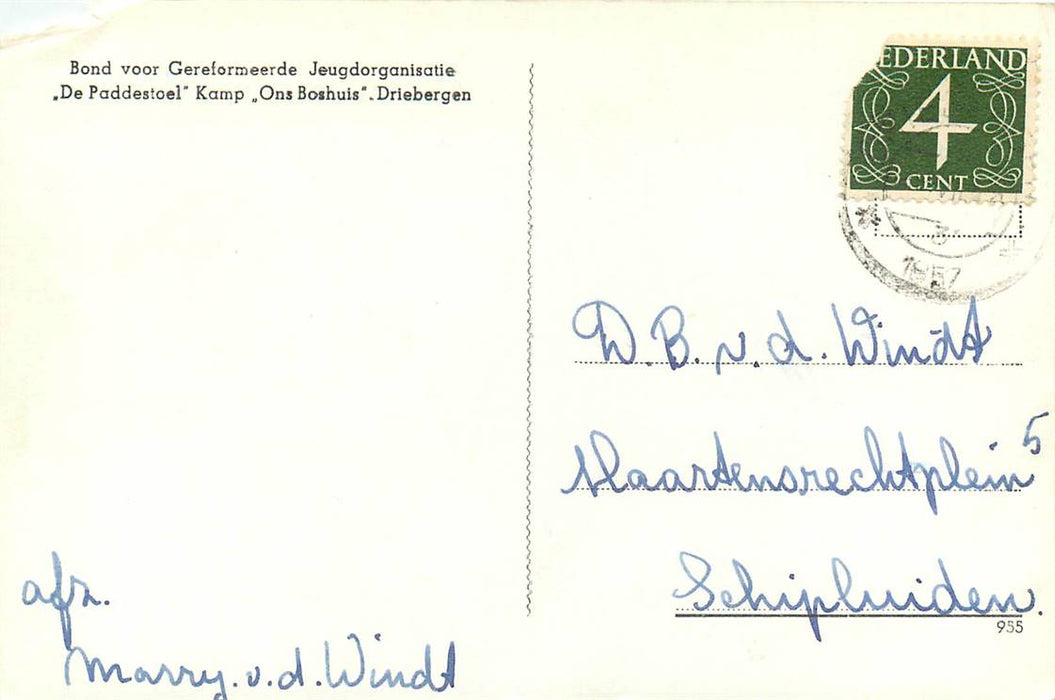 Bond voor Gereformeerde Jeugdorganisatie
„De Paddestoel" Kamp „Ons Boshuis". Driebergen
EDERLAND
4
CENT
1957
W. B. v. d. Windt
Maartensrechtplein 5
Schipluiden.
955
afz.
Marry. v. d. Windt